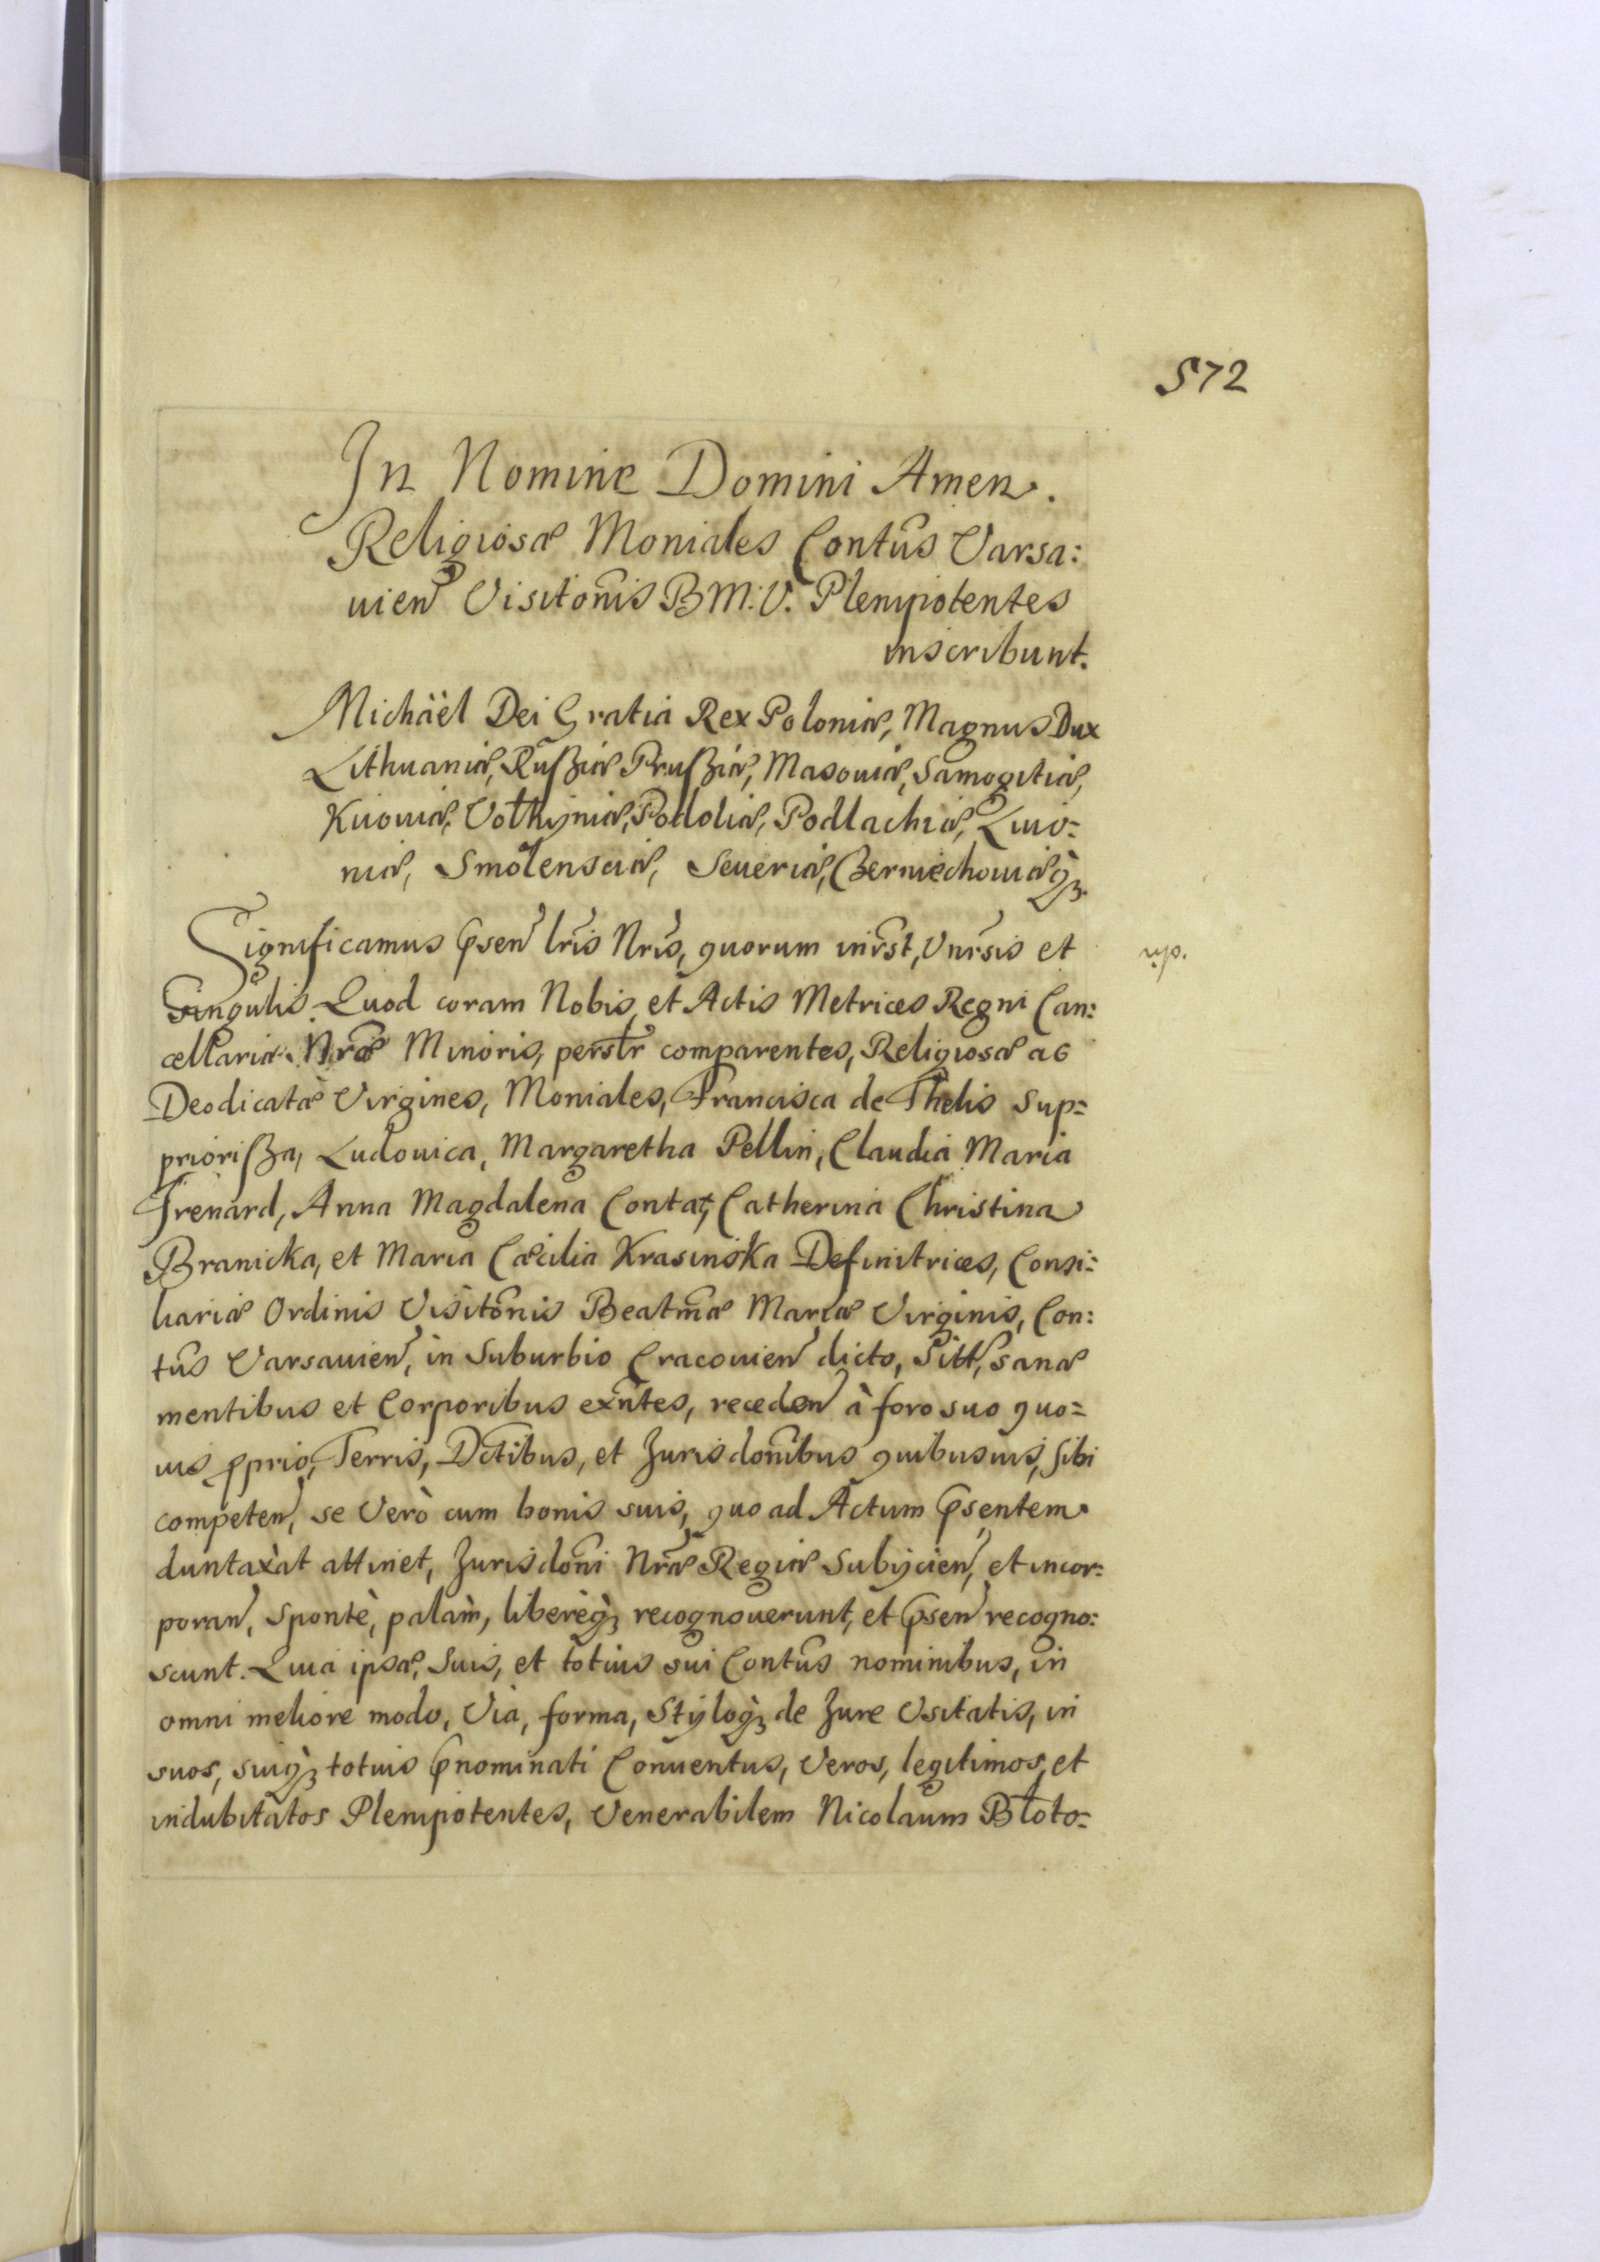 572
In Nomine Domini Amen.
Religiosæ Moniales Contûs Varsa:
uien̄ Visitōnis B M: V. Plenipotentes
inscribunt.
Michäel Dei Gratia Rex Poloniæ, Magnus Dux
Lithuaniæ, Rußiæ Prußiæ, Masouiæ, Samogitiæ,
Kiiouiæ, Volhyniæ, Podoliæ, Podlachiæ, Liuo:
niæ, Smolensciæ, Seueriæ, Czerniechouiæq́3.
Significamus p̄sen̄ lr̄is Nr̄is, quorum inir̄st, Vnr̄sis et
Singulis. Quod coram Nobis, et Actis Metrices Regni Can:
cellariæ Nr̄æ Minoris, persłr comparentes, Religiosæ ac
Deodicatæ Virgines, Moniales, Francisca de Thelis Sup:
priorißa, Ludouica, Margaretha Pellin, Claudia Maria
Frenard, Anna Magdalena Contat, Catherina Christina
Branicka, et Maria Cæcilia Krasinska Definitrices, Consi:
liariæ Ordinis Visitōnis Beatm̄æ Mariæ Virginis, Con:
tûs Varsauien̄, in Suburbio Cracouien̄ dicto, Sitt, sanæ
mentibus et Corporibus exn̄tes, receden̄ à foro suo quo:
uis ꝓprio, Terris, Dctibus, et Jurisdōnibus quibusuis, sibi
competen̄, se Verò cum bonis suis, quo ad Actum p̄sentem
duntaxàt attinet, Jurisdōni Nr̄æ Regiæ Subijcien̄, et incor:
poran̄, Spontè, palàm, liberèq́3 recognouerunt, et p̄sen̄ recogno:
scunt. Quia ipsæ, Suis, et totius sui Contûs nominibus, in
omni meliore modo, Via, forma, Styloq́3 de Jure Vsitatis, in
suos, suiq́3 totius p̄nominati Conuentus, Veros, legitimos, et
indubitatos Plenipotentes, Venerabilem Nicolaum Błoto: